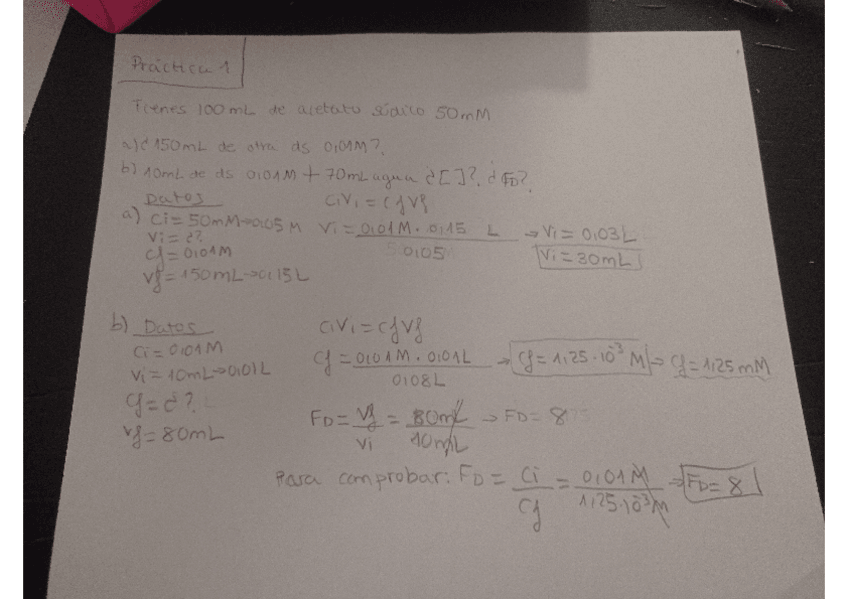 Práctica 1
Tienes 100mL de acetato sódico 50mM
a) ¿150mL de otra ds 0,01M?
b) 10mL de ds 0,01M + 70mL agua ¿[ ]?, ¿FD?
Datos
CiVi = CfVf
a) Ci = 50mM → 0,05 M
Vi = ¿?
Cf = 0,01M
Vf = 150mL → 0,15L
Vi = 0,01M · 0,15 L / 0,05 → Vi = 0,03L
Vi = 30mL
b) Datos
Ci = 0,01M
Vi = 10mL → 0,01L
Cf = ¿?
Vf = 80mL
CiVi = CfVf
Cf = 0,01M · 0,01L / 0,08L → Cf = 1,25·10⁻³ M → Cf = 1,25 mM
FD = Vf / Vi = 80mL / 10mL → FD = 8
Para comprobar: FD = Ci / Cf = 0,01M / 1,25·10⁻³M → FD = 8